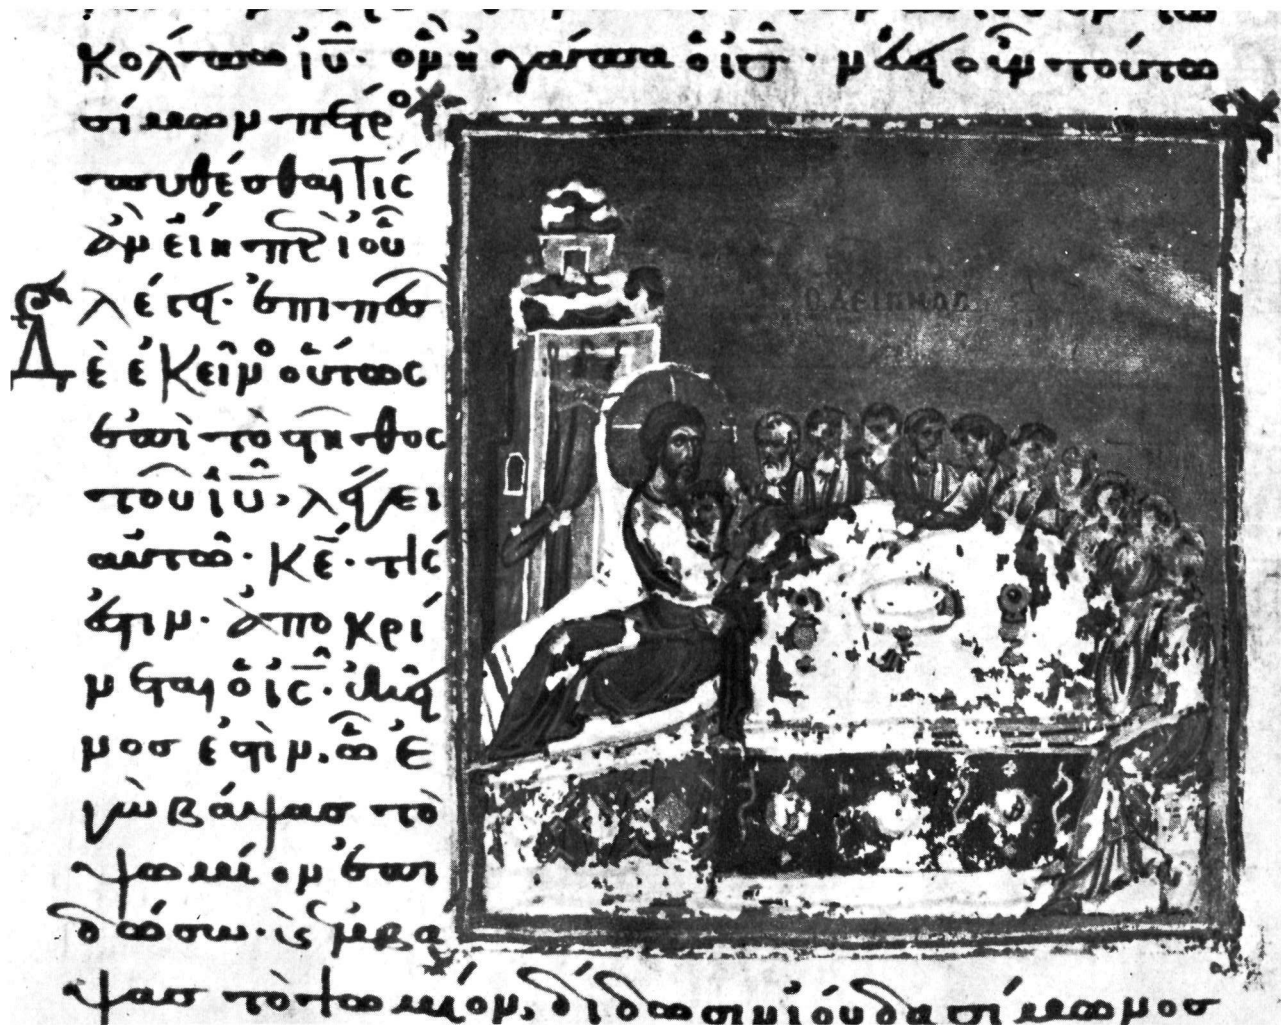 κόλπω ἰῦ· ὃν ἠγάπα ὁ ἰς̅· νεύει οὖν τούτω
σίμων πέτρο
πυθέσθαι τίς
ἂν εἴη περὶ οὗ
λέγει· ἐπιπεσὼν
Δὲ ἐκεῖνο οὕτως
ἐπὶ τὸ στῆθος
τοῦ ἰῦ, λέγει
αὐτῶ· κε̅· τίς
ἐστιν· ἀποκρί
νεται ὁ ἰς̅· ἐκεῖ
νος ἐστὶν, ὧ ἐ
γὼ βάψας τὸ
ψωμίον ἐπι
δώσω· κὶ ἐμβά
ψας τὸ ψωμίον, δίδωσιν ἰούδα σίμωνος
Ο ΔΕΙΠΝΟC